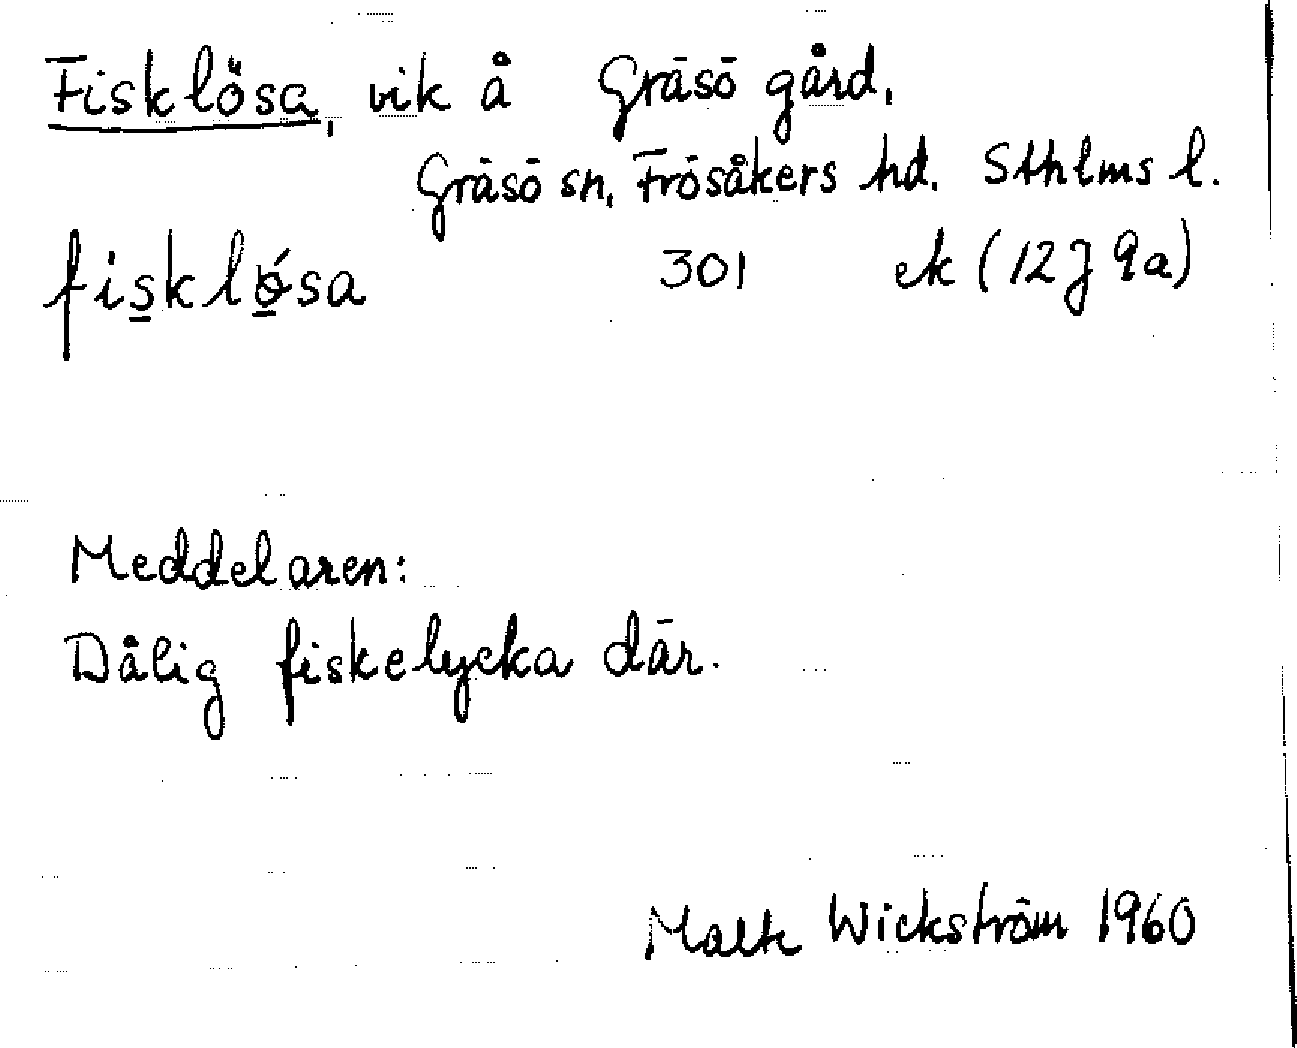 Fisklösa, vik å Gräsö gård,
Gräsö sn, Frösåkers hd. Sthlms l.
fisklösa 301 ek (12J 9a)
Meddelaren:
Dålig fiskelycka där.
Wickström 1960